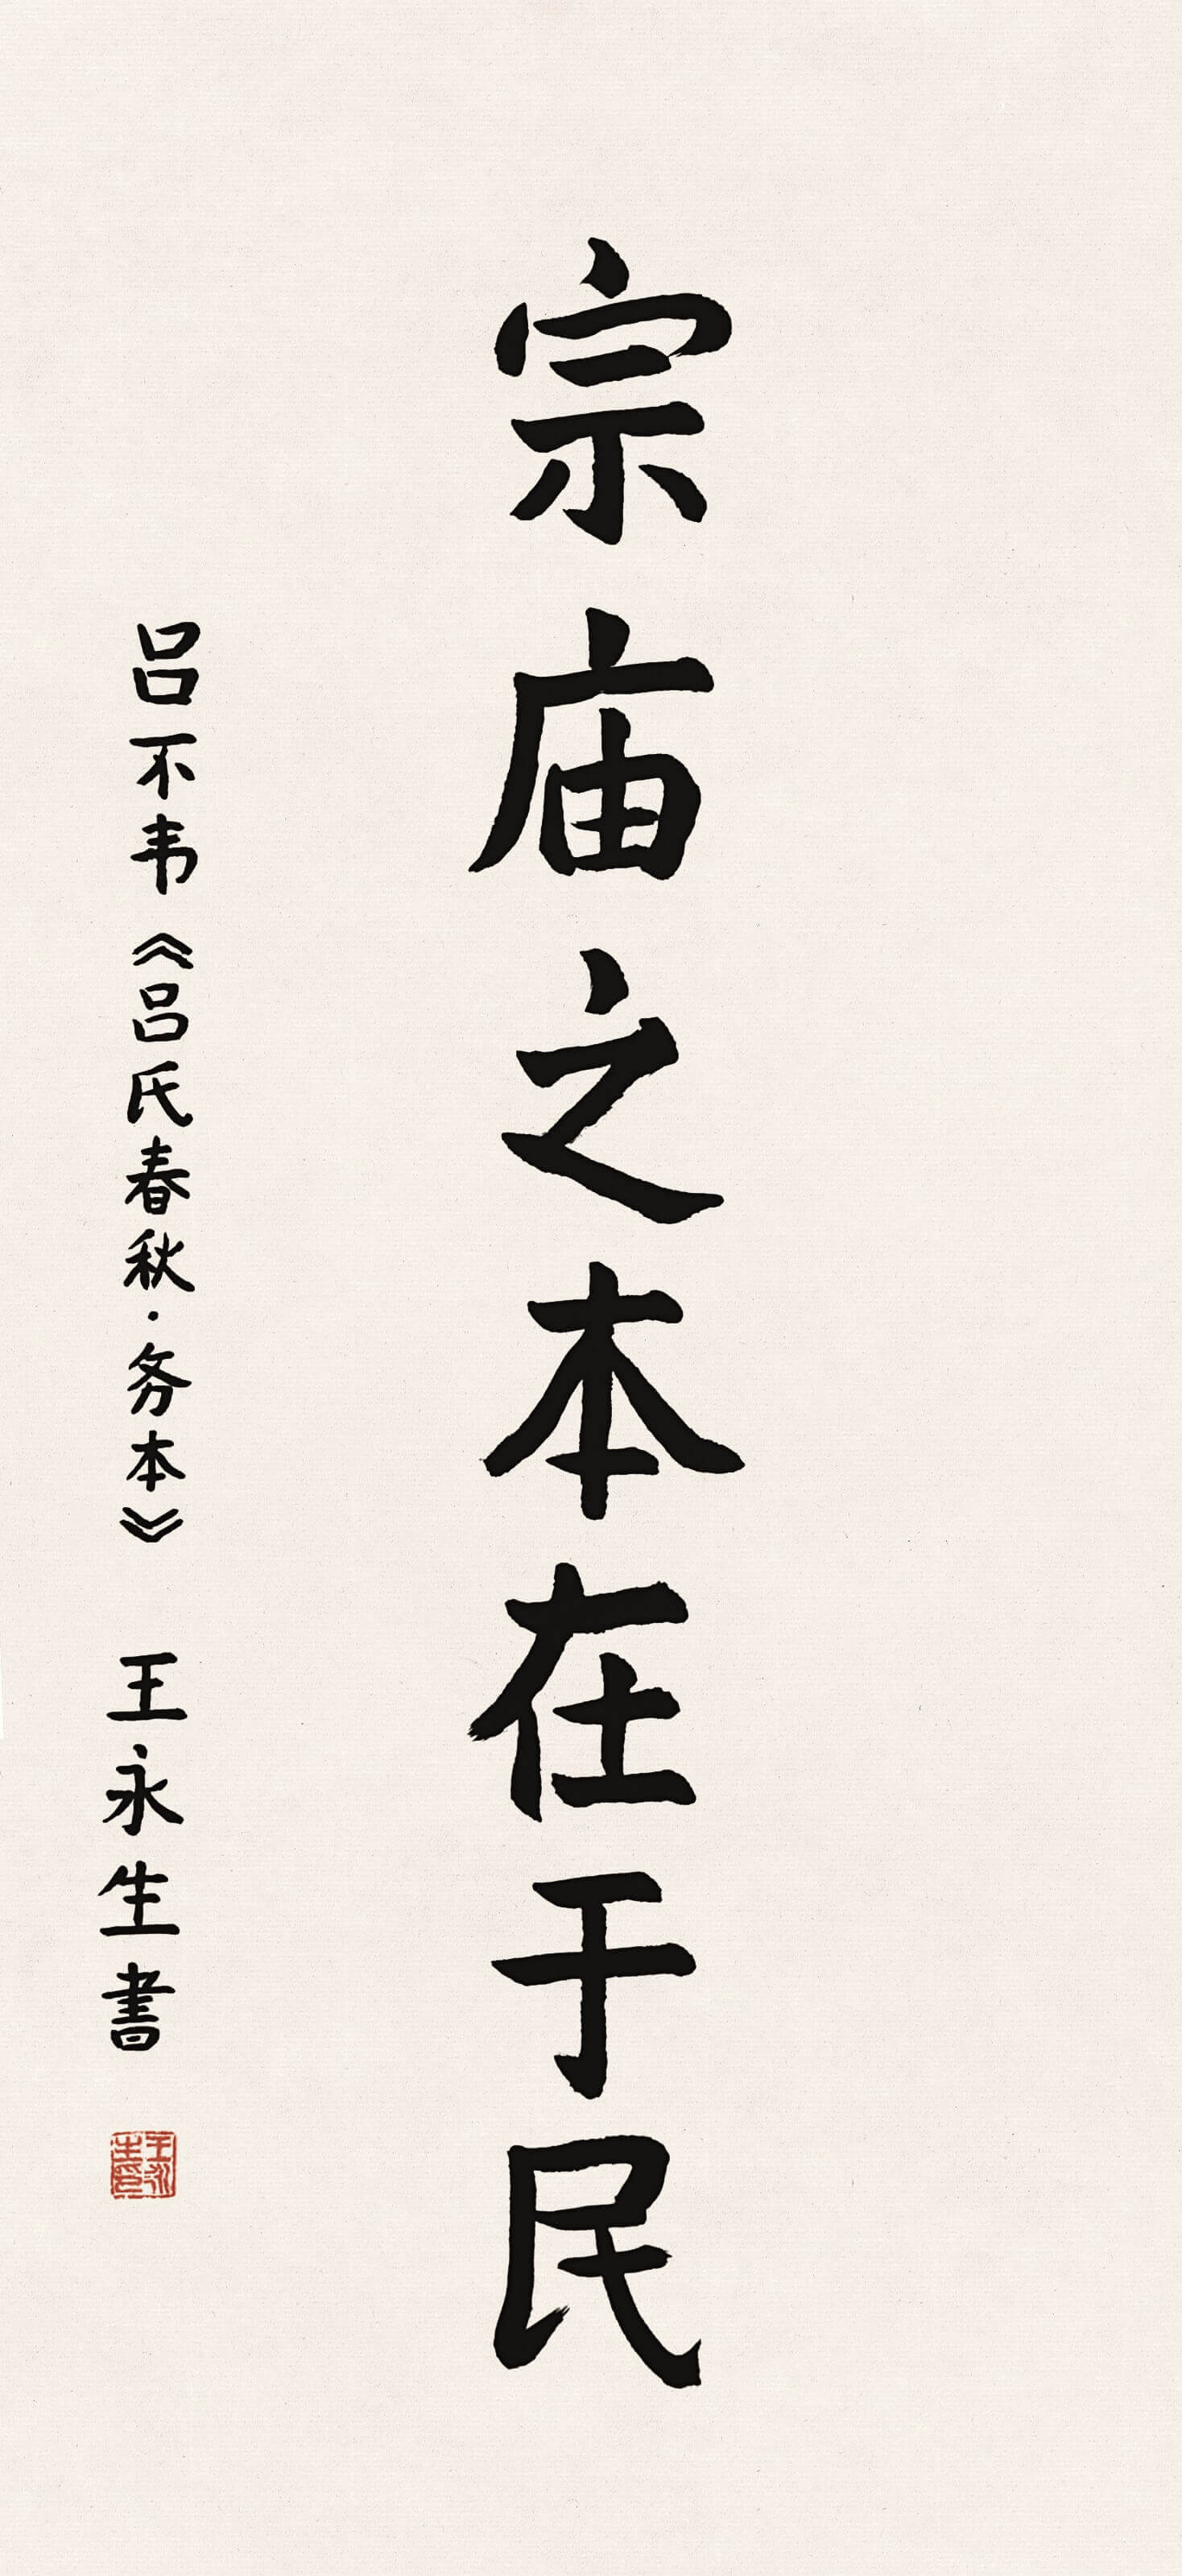 宗庙之本在于民
吕不韦《吕氏春秋·务本》 王永生書
王永生印